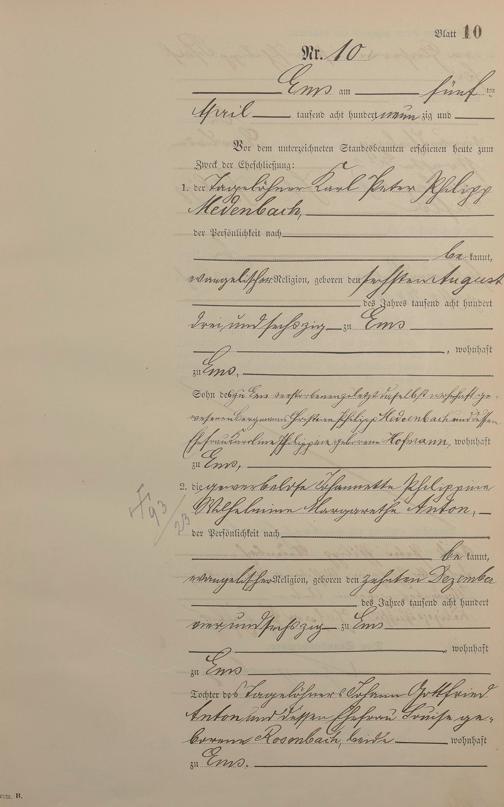 Blatt 10
Nr. 10
Ems am fünften
April tausend acht hundert neunzig und
Vor dem unterzeichneten Standesbeamten erschienen heute zum
Zweck der Eheschließung:
1. der Tagelöhner Karl Peter Philipp
Medenbach,
der Persönlichkeit nach
be kannt,
evangelischer Religion, geboren den sechsten August
des Jahres tausend acht hundert
drei und sechszig zu Ems
, wohnhaft
zu Ems,
Sohn des zu Ems verstorbenen zuletzt daselbst wohnhaft ge-
wesenen Bergmanns Christian Philipp Medenbach und dessen
Ehefrau Karoline Philippine geborene Hofmann, wohnhaft
zu Ems,
2. die gewerbelose Johannette Philippine
Wilhelmine Margarethe Anton,
der Persönlichkeit nach
be kannt,
evangelischer Religion, geboren den zehnten Dezember
des Jahres tausend acht hundert
vier und sechszig zu Ems
, wohnhaft
zu Ems
Tochter des Tagelöhners Johann Gottfried
Anton und dessen Ehefrau Louise ge-
borene Rosenbach, beide wohnhaft
zu Ems.
93/23
B.